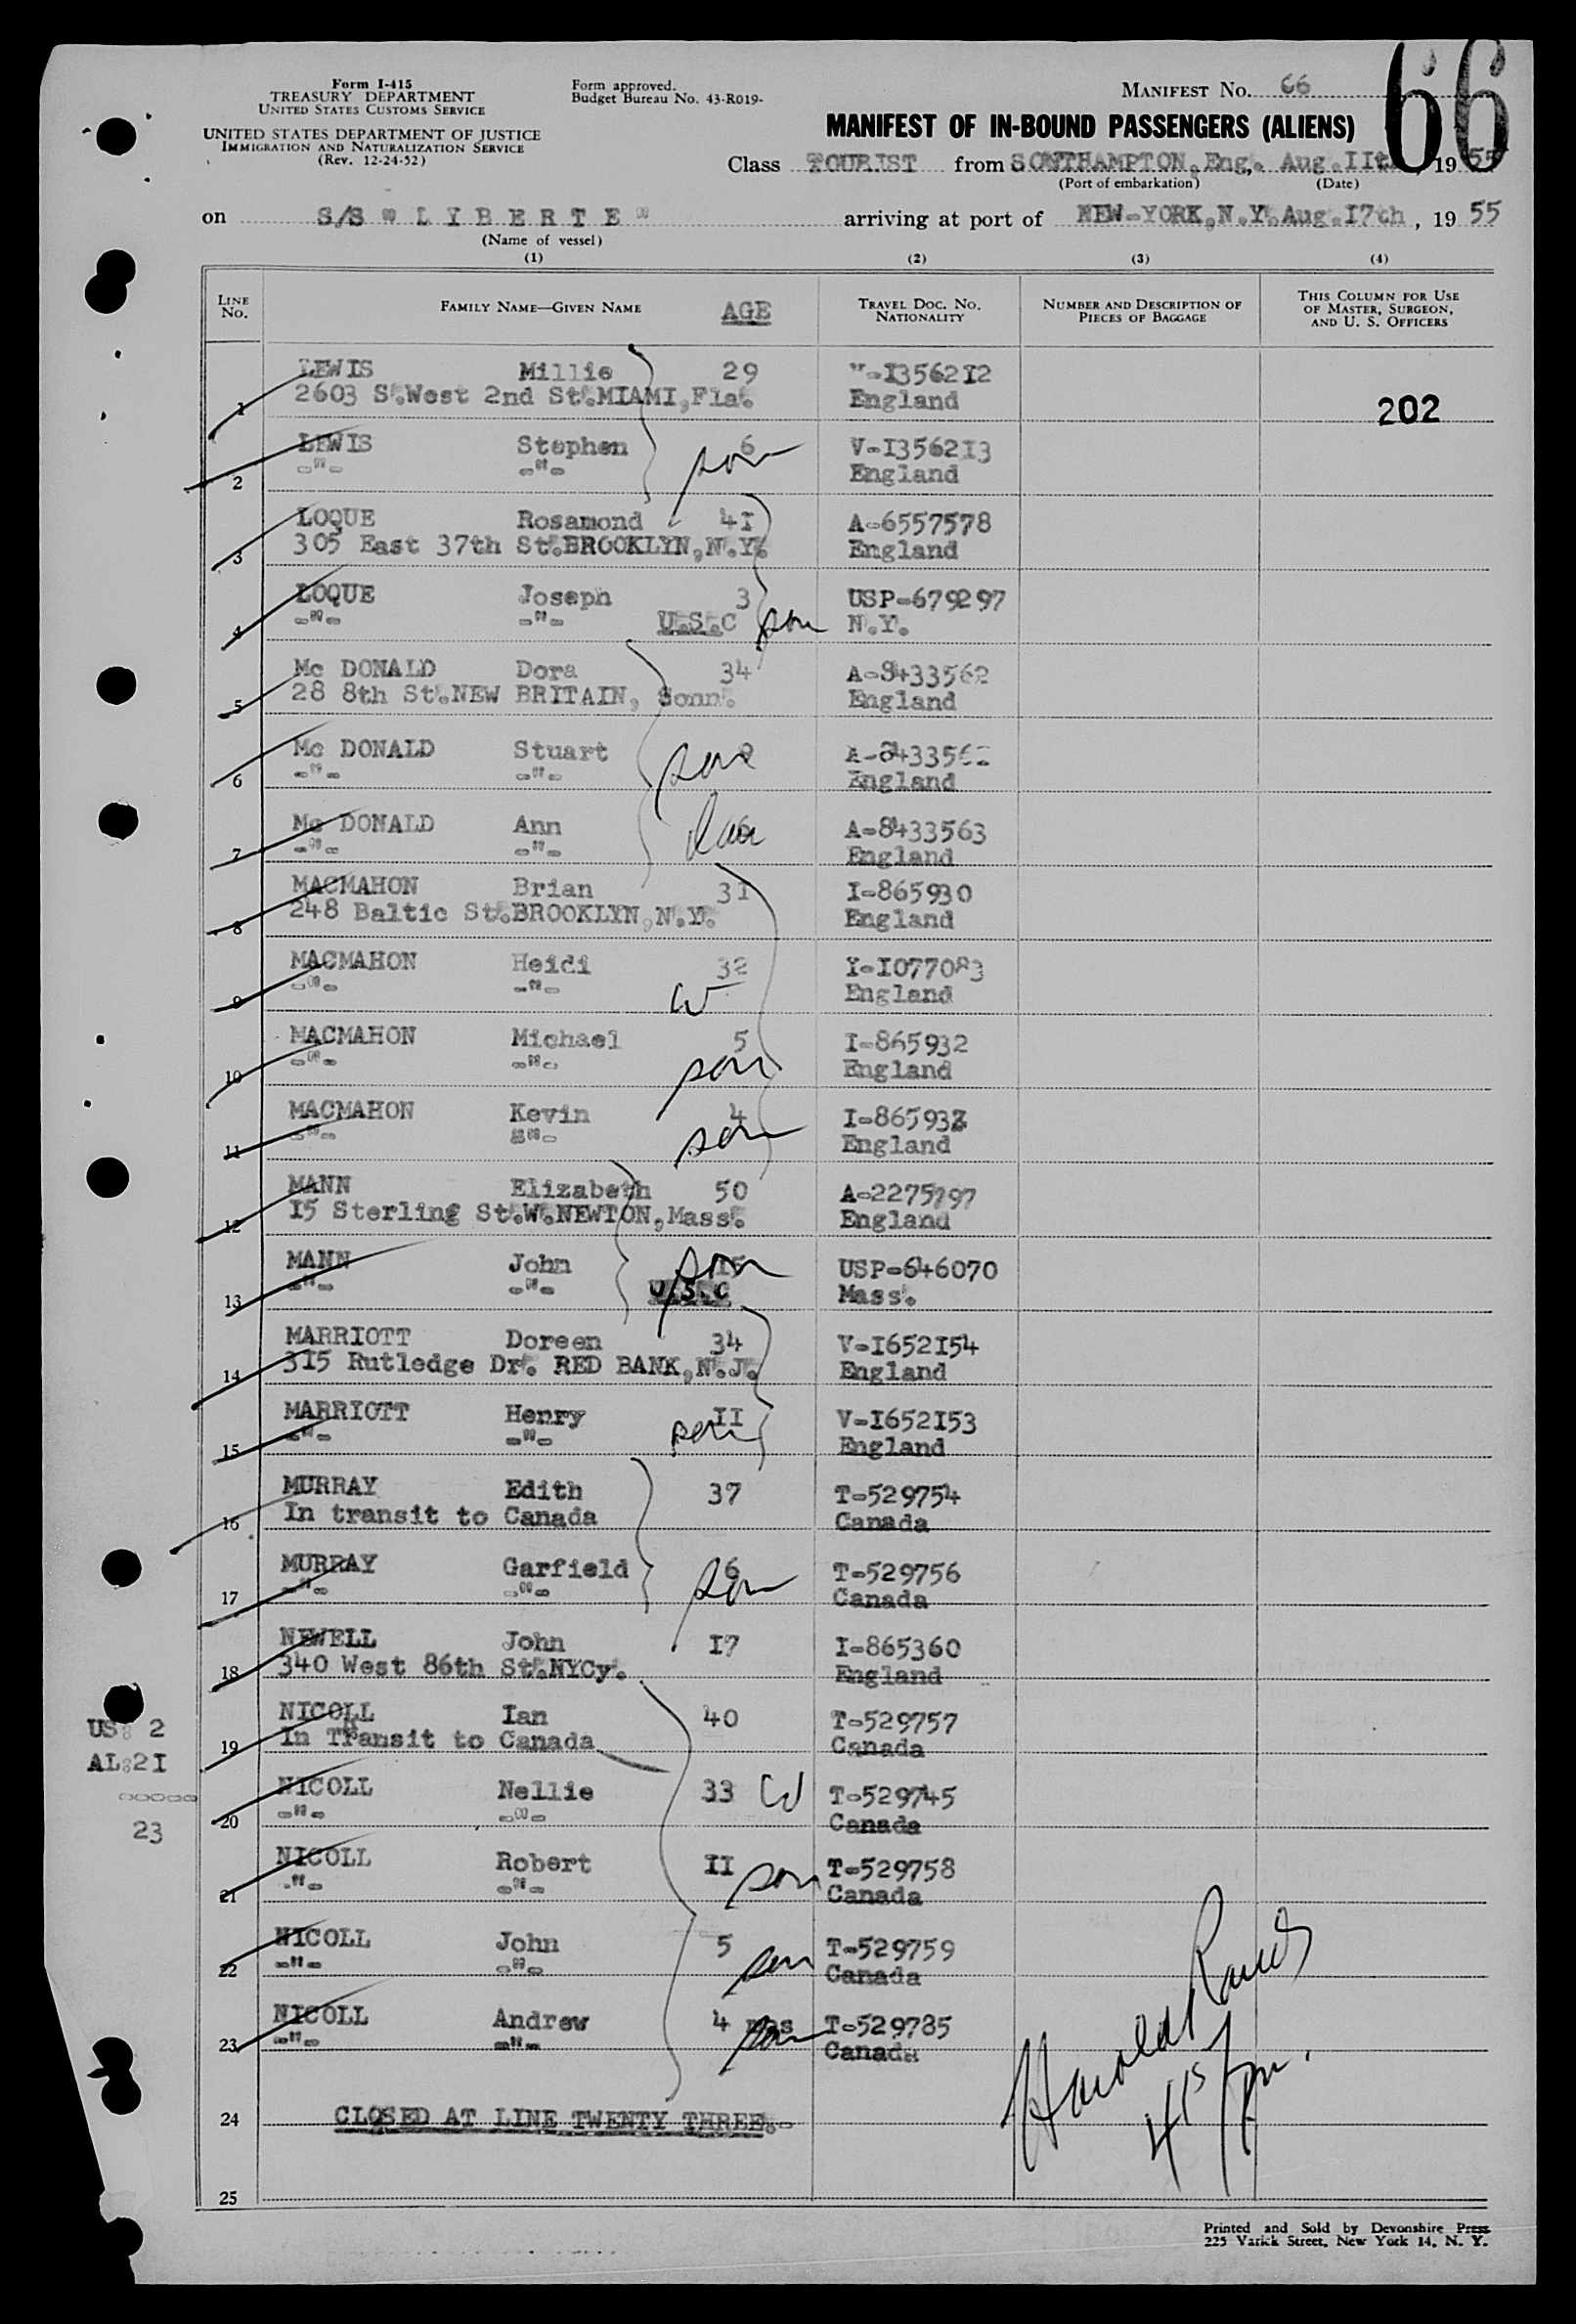 Form I-415
TREASURY DEPARTMENT
UNITED STATES CUSTOMS SERVICE
UNITED STATES DEPARTMENT OF JUSTICE
IMMIGRATION AND NATURALIZATION SERVICE
(Rev. 12-24-52)
Form approved.
Budget Bureau No. 43-R019-
MANIFEST No. 66
66
MANIFEST OF IN-BOUND PASSENGERS (ALIENS)
Class TOURIST from SOUTHAMPTON,Eng,. Aug.IIth, 19 55
(Port of embarkation) (Date)
on S/S " L I B E R T E " arriving at port of NEW-YORK,N.Y.Aug.I7th, 19 55
(Name of vessel)
(1) (2) (3) (4)
LINE No. FAMILY NAME—GIVEN NAME AGE TRAVEL DOC. No. NATIONALITY NUMBER AND DESCRIPTION OF PIECES OF BAGGAGE THIS COLUMN FOR USE OF MASTER, SURGEON, AND U. S. OFFICERS
LEWIS Millie 29 -I3562I2
1 2603 S.West 2nd St.MIAMI,Fla. England 202
LEWIS Stephen 6 son V-I3562I3
2 -"- -"- England
LOQUE Rosamond 4I A-6557578
3 305 East 37th St.BROOKLYN,N.Y. England
LOQUE Joseph 3 USP-679297
4 -"- -"- U.S.C son N.Y.
Mc DONALD Dora 34 A-8433562
5 28 8th St.NEW BRITAIN, Conn. England
Mc DONALD Stuart son
6 -"- -"- England
Mc DONALD Ann 6 A-8433563
7 -"- -"- England
MACMAHON Brian 3I I-865930
8 248 Baltic St.BROOKLYN,N.Y. England
MACMAHON Heidi 32 I-I077083
9 -"- -"- W England
MACMAHON Michael 5 I-865932
10 -"- -"- son England
MACMAHON Kevin 4 I-86593
11 -"- -"- son England
MANN Elizabeth 50 A-2275797
12 I5 Sterling St.W.NEWTON,Mass. England
MANN John I5 son USP-646070
13 -"- -"- U.S.C Mass.
MARRIOTT Doreen 34 V-I652I54
14 3I5 Rutledge Dr. RED BANK,N.J. England
MARRIOTT Henry II V-I652I53
15 -"- -"- son England
MURRAY Edith 37 T-529754
16 In transit to Canada Canada
MURRAY Garfield 6 T-529756
17 -"- -"- son Canada
NEWELL John I7 I-865360
18 340 West 86th St.NYCy. England
NICOLL Ian 40 T-529757
19 In Transit to Canada Canada
NICOLL Nellie 33 W T-529745
20 -"- -"- Canada
NICOLL Robert II son T-529758
21 -"- -"- Canada
NICOLL John 5 son T-529759
22 -"- -"- Canada
NICOLL Andrew 4 mos son T-529785
23 -"- -"- Canada
24 CLOSED AT LINE TWENTY THREE.-
25
US: 2
AL:2I
23
Harold
4 15 pm.
Printed and Sold by Devonshire Press
225 Varick Street, New York 14, N. Y.